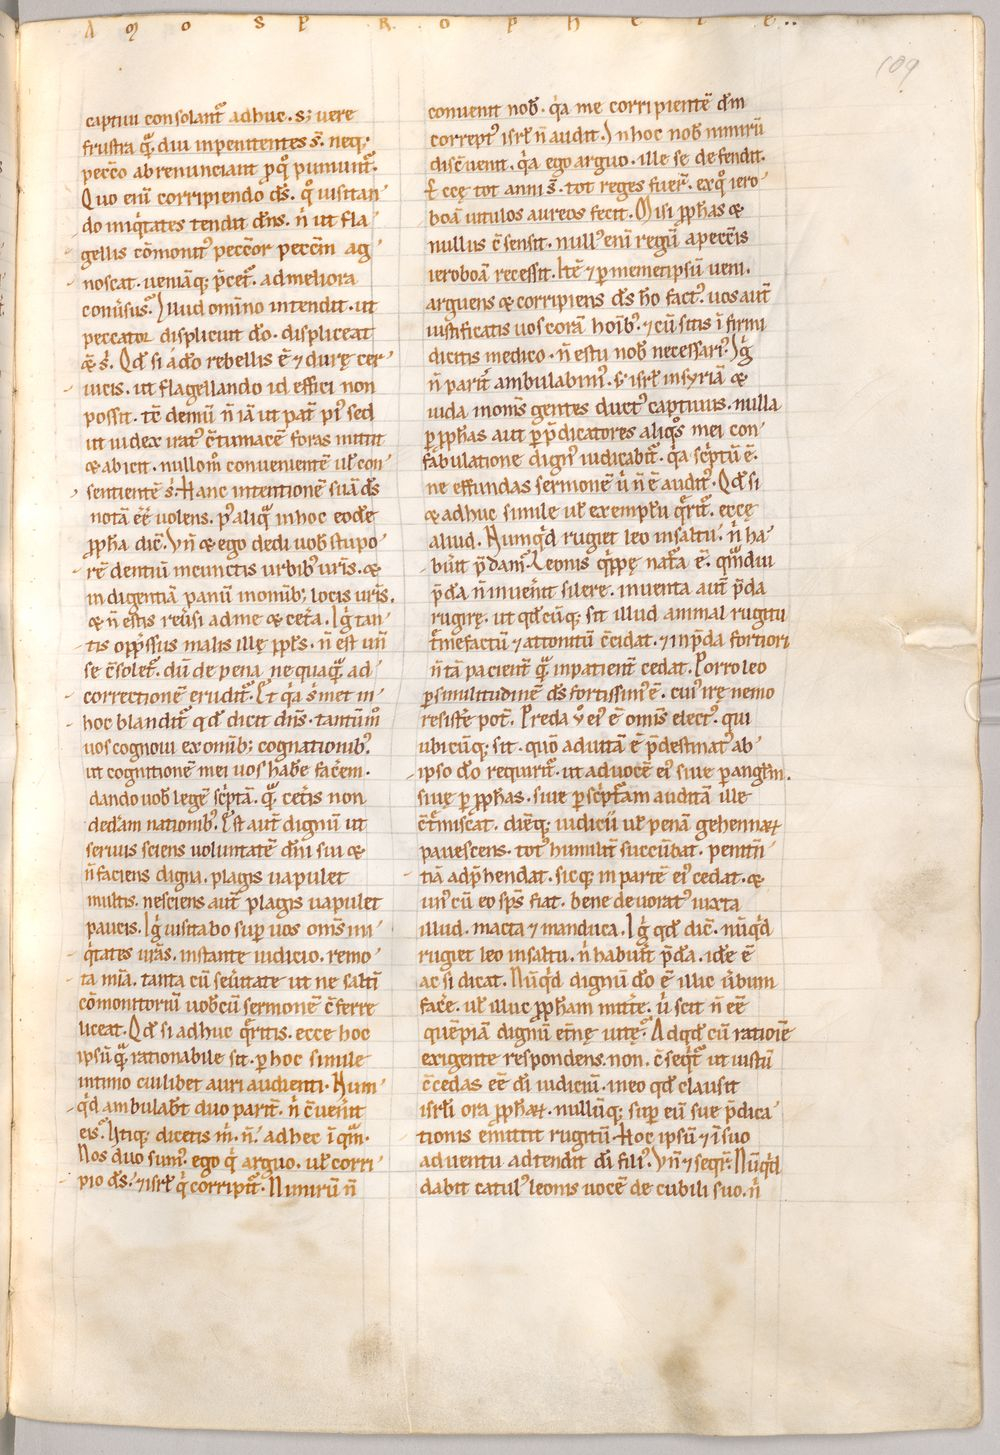 A M O S P R O P H E T E..
109
captiui consolant᷒ adhuc. s; uere
frustra q̄. diu inpenitentes s̄. neq;
pecc̄o abrenunciant p̱q̄ puniunt᷒.
Quo eni᷒ corripiendo d̄s. q̊ uisitan
do iniq̇tates tendit d̄ns. n̄ ut fla
gellis cōmonit᷒ pecc̄or pecc̄m ag
noscat. ueniāq; p̄cet᷒. ad meliora
conu̇sus᷒. Illud omīno intendit. ut
peccator displicuit d̄o. displiceat
& s᷒. Qd̄ si a d̄o rebellis ē ⁊ durę cer
uicis. ut flagellando id effici non
possit. tc̄ demū n̄ iā ut pat᷒ pi᷒ sed
ut iudex irat᷒ c̄tumacē foras mittit
& abicit. nullom̊ conuenientē ul̄ con
sentientē s᷒. Hanc intentionē suā d̄s
notā ēē uolens. p᷒ aliq̄ in hoc eod̄e
p̱p̱ha dic̄. Vn̄ & ego dedi uob̄ stupo
rē dentiū in cunctis urbib᷒ ur̄is. &
indigentiā panū in omib; locis ur̄is.
& n̄ estis reu̇si ad me & cet̄a. Iġ tan
tis opp̄ssus malis ille pp̄ls. n̄ est un̄
se c̄solet᷒. dū de pena nequaq̄ ad
correctionē erudit᷒. Et q̇a s᷒met in
hoc blandit᷒ qd̄ dicit d̄ns. tantūm̊
uos cognoui ex omib; cognationib᷒.
ut cognitionē mei uos hab̄e fac̄em.
dando uob̄ legē sc̄ptā. q̄ cet̄is non
ded̄am nationib᷒. Est aut̄ dignū ut
seruus sciens uoluntatē d̄ni sui &
n̄ faciens digna. plagis uapulet
multis. nesciens aut̄ plagis uapulet
paucis. Iġ uisitabo sup̱ uos om̄s ini
q̇tates ur̄as. instante iudicio. remo
ta mīa. tanta cū seu̇itate ut ne salti᷒
cōmonitoriū uob̄cū sermonē c̄ferre
liceat. Qd̄ si adhuc q̄ritis. ecce hoc
ipsū q̄ rationabile sit. p̱ hoc simile
intimo cuilibet auri audienti. Num
q̇d ambulab̄t duo parit̄. n᷒ c̄uen᷒it
eis᷒. Utiq; dicetis m᷒. n̄. ad hec inq̄m.
Nos duo sum᷒. ego q᷒ arguo. ul̄ corri
pio d̄s. ⁊ isrl̄ q᷒ corripit᷒. Nimirū n̄
conuenit nob̄. q̇a me corripientē d̄m
corrept᷒ isrl̄ n̄ audit. In hoc nob̄ nimirū
disc̄uenit. q̇a ego arguo. ille se defendit.
Eccę tot anni s̄. tot reges fuer̄. ex q̊ iero
boā uitulos aureos fecit. Misi p̱p̱has &
nullus c̄sensit. null᷒ eni᷒ regū a pecc̄is
ieroboā recessit. Itē ⁊ p̱ memetipsū ueni.
arguens & corripiens d̄s h̄o fact᷒. uos aut̄
iustificatis uos corā hoīb᷒. ⁊ cū sitis īfirmi
dicitis medico. n̄ es tu nob̄ necessari᷒. Iġ
n̄ parit̄ ambulabim᷒. s᷒ isrl̄ in syriā &
iuda in om̄s gentes duct᷒ captiuus. nulla
p̱ p̱p̱has aut p̱ p̄dicatores aliq̊s mei con
fabulatione dign᷒ iudicabit᷒. q̇a sc̄ptū ē.
ne effundas sermonē u̇ n̄ ē audit᷒. Qd̄ si
& adhuc simile ul̄ exemplū q̄rit᷒. eccę
aliud. Numq̇d rugiet leo in saltu. n᷒ ha
bu᷒it p̄dam᷒. Leonis q̇ppę nat̄a ē. qm̄diu
p̄da n̄ inuen᷒it silere. inuenta aut̄ p̄da
rugirę. ut qd̄cūq; sit illud animal rugitu
t᷒mefactū ⁊ attonitū c̄cidat. ⁊ in p̄da fortiori
n̄ tā pacient᷒ q̄ inpatient᷒ cedat. Porro leo
p̱ similitudinē d̄s fortissim᷒ ē. cui᷒ irę nemo
resist̄e pot̄. Preda u̇ ei᷒ ē omis elect᷒. qui
ubicūq; sit. quō ad uitā ē p̄destinat᷒ ab
ipso d̄o requirit᷒. ut ad uocē ei᷒ siue p̱ angl̄m.
siuę p̱ p̱p̱has. siue p̱ sc̄pt̄am auditā ille
c̄t᷒miscat. diēq; iudicii ul̄ penā gehennaꝝ
pauescens. tot᷒ humilit̄ succūbat. penitn̄
tiā adp̄hendat. sicq; in partē ei᷒ cedat. &
un᷒ cū eo sp̄s fiat. bene deuorat᷒ iuxta
illud. macta ⁊ manduca. Iġ qd̄ dic̄. nūq̇d
rugiet leo in saltu. n᷒ habu᷒it p̄da. id̄e ē
ac si dicat. Nūq̇d dignū d̄o ē illuc u̇bum
fac̄e. ul̄ illuc p̱p̱ham mitt̄e. u̇ scit n̄ ēē
quēpiā dignū et̄nę uitę᷒. Ad qd̄ cū ratioīe
exigente respondens. non. c̄seq̄t᷒ ut iustū
c̄cedas ēē d̄i iudiciū. in eo qd̄ clausit
isrl̄i ora p̱p̱haꝝ. nullūq; sup̱ eū sue p̄dica
tionis emittit rugitū. Hoc ipsū ⁊ ī suo
aduentu adtendit d̄i fili᷒. Vn̄ ⁊ seqr̄. Nūq̇d
dabit catul᷒ leonis uocē de cubili suo. n᷒